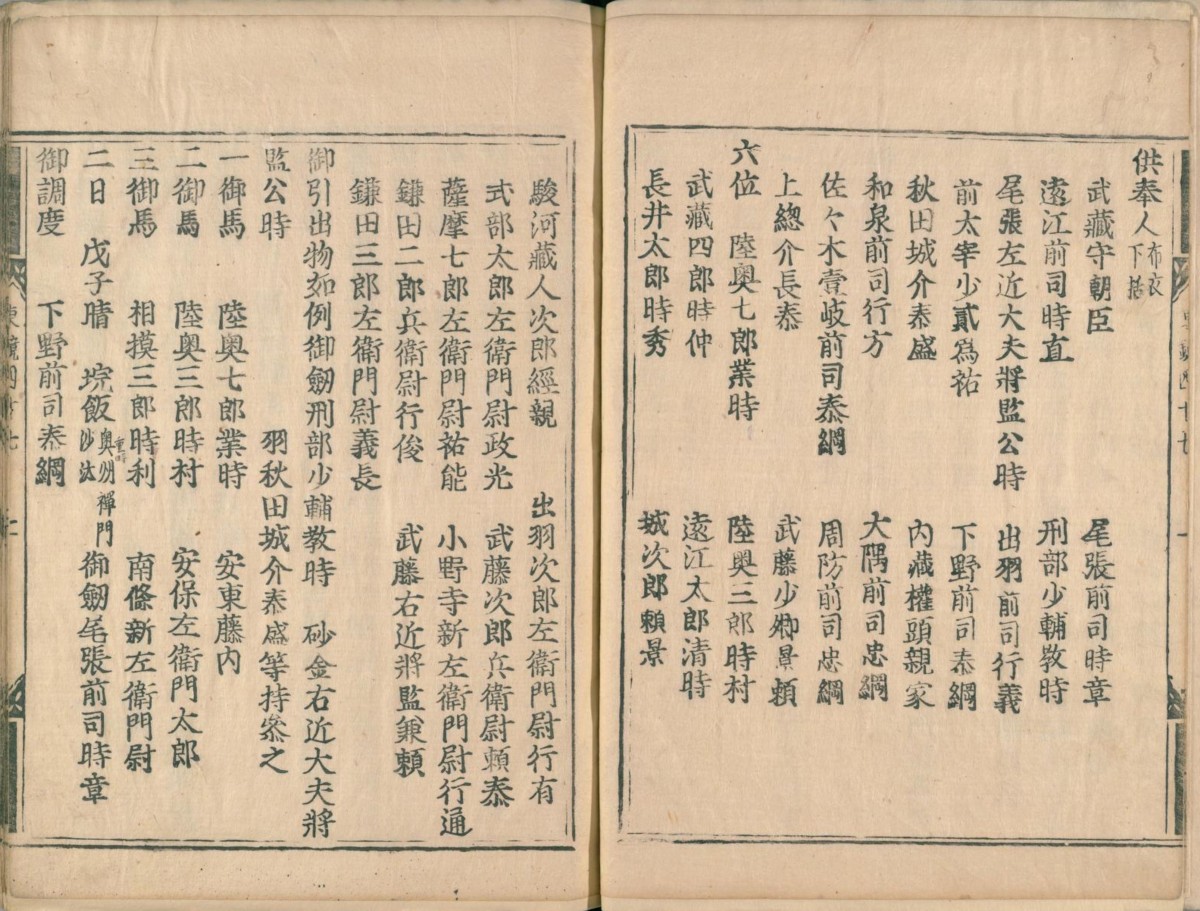 供奉人 布衣下括
武藏守朝臣 尾張前司時章
遠江前司時直 刑部少輔敎時
尾張左近大夫將監公時 出羽前司行義
前太宰少貳為祐 下野前司泰綱
秋田城介泰盛 內藏權頭親家
和泉前司行方 大隅前司忠綱
佐々木壹岐前司泰綱 周防前司忠綱
上總介長泰 武藤少卿景頼
六位 陸奥七郎業時 陸奥三郎時村
武藏四郎時仲 遠江太郎清時
長井太郎時秀 城次郎頼景
駿河藏人次郎經親 出羽次郎左衛門尉行有
式部太郎左衛門尉政光 武藤次郎兵衛尉頼泰
薩摩七郎左衛門尉祐能 小野寺新左衛門尉行通
鎌田二郎兵衛尉行俊 武藤右近將監兼頼
鎌田三郎左衛門尉義長
御引出物如例御劔刑部少輔教時 砂金右近大夫將
監公時 羽秋田城介泰盛等持參之
一御馬 陸奥七郎業時 安東藤内
二御馬 陸奥三郎時村 安保左衛門太郎
三御馬 相摸三郎時利 南條新左衛門尉
二日 戊子晴 垸飯 奥州禪門重時沙汰 御劔尾張前司時章
御調度 下野前司泰綱